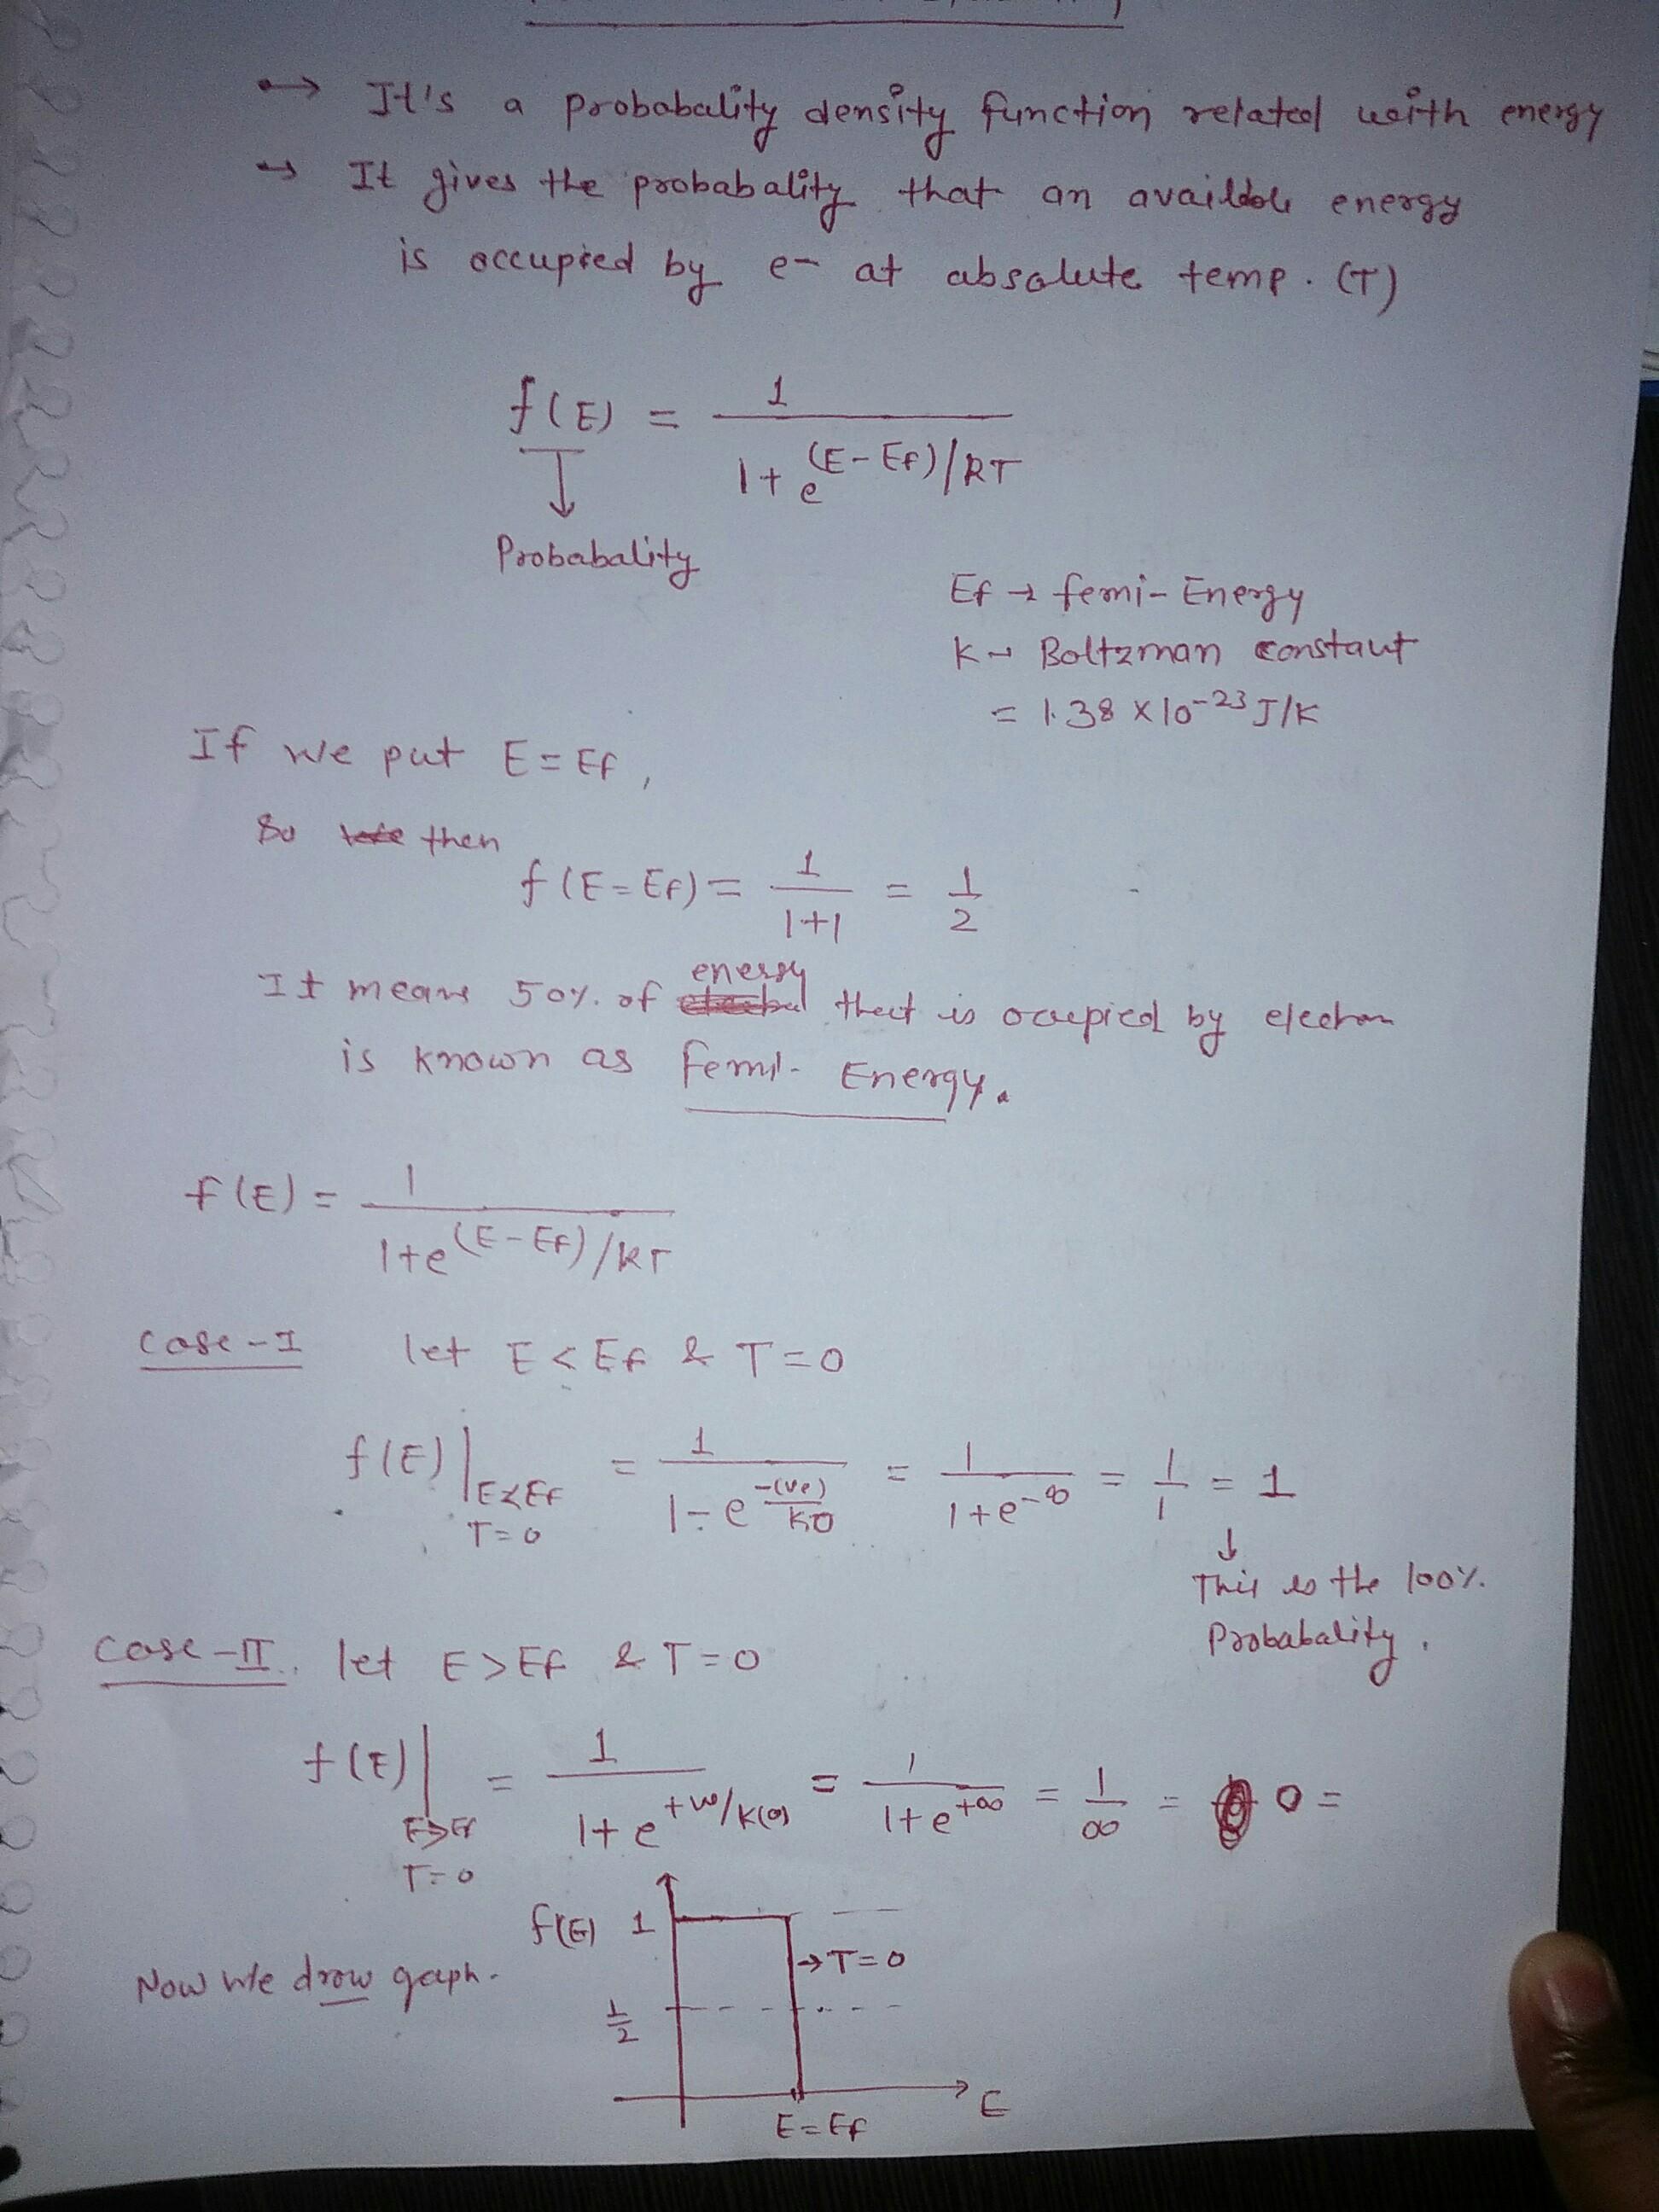 → It's a probobality density function related with energy
→ It gives the probabality that an availible energy
is occupied by e- at absolute temp. (T)
f(E) = 1 / 1+e^(E-Ef)/kT
↓
Probabality
Ef → femi-Energy
K → Boltzman constant
= 1.38 × 10^-23 J/K
If we put E = Ef,
So then
f(E=Ef) = 1/1+1 = 1/2
It means 50% of energy that is occupied by electron
is known as femi- Energy.
f(E) = 1 / 1+e^(E-Ef)/kT
Case-I let E < Ef & T=0
f(E)|E<Ef T=0 = 1 / 1+e^-(ve)/K0 = 1 / 1+e^-∞ = 1/1 = 1
↓
This is the 100%
Probabality.
Case-II. let E > Ef & T=0
f(E)|E>Ef T=0 = 1 / 1+e^+ve/K(0) = 1 / 1+e^+∞ = 1/∞ = 0 =
Now We draw gaph.
f(E) 1
→ T=0
1/2
E
E = Ef